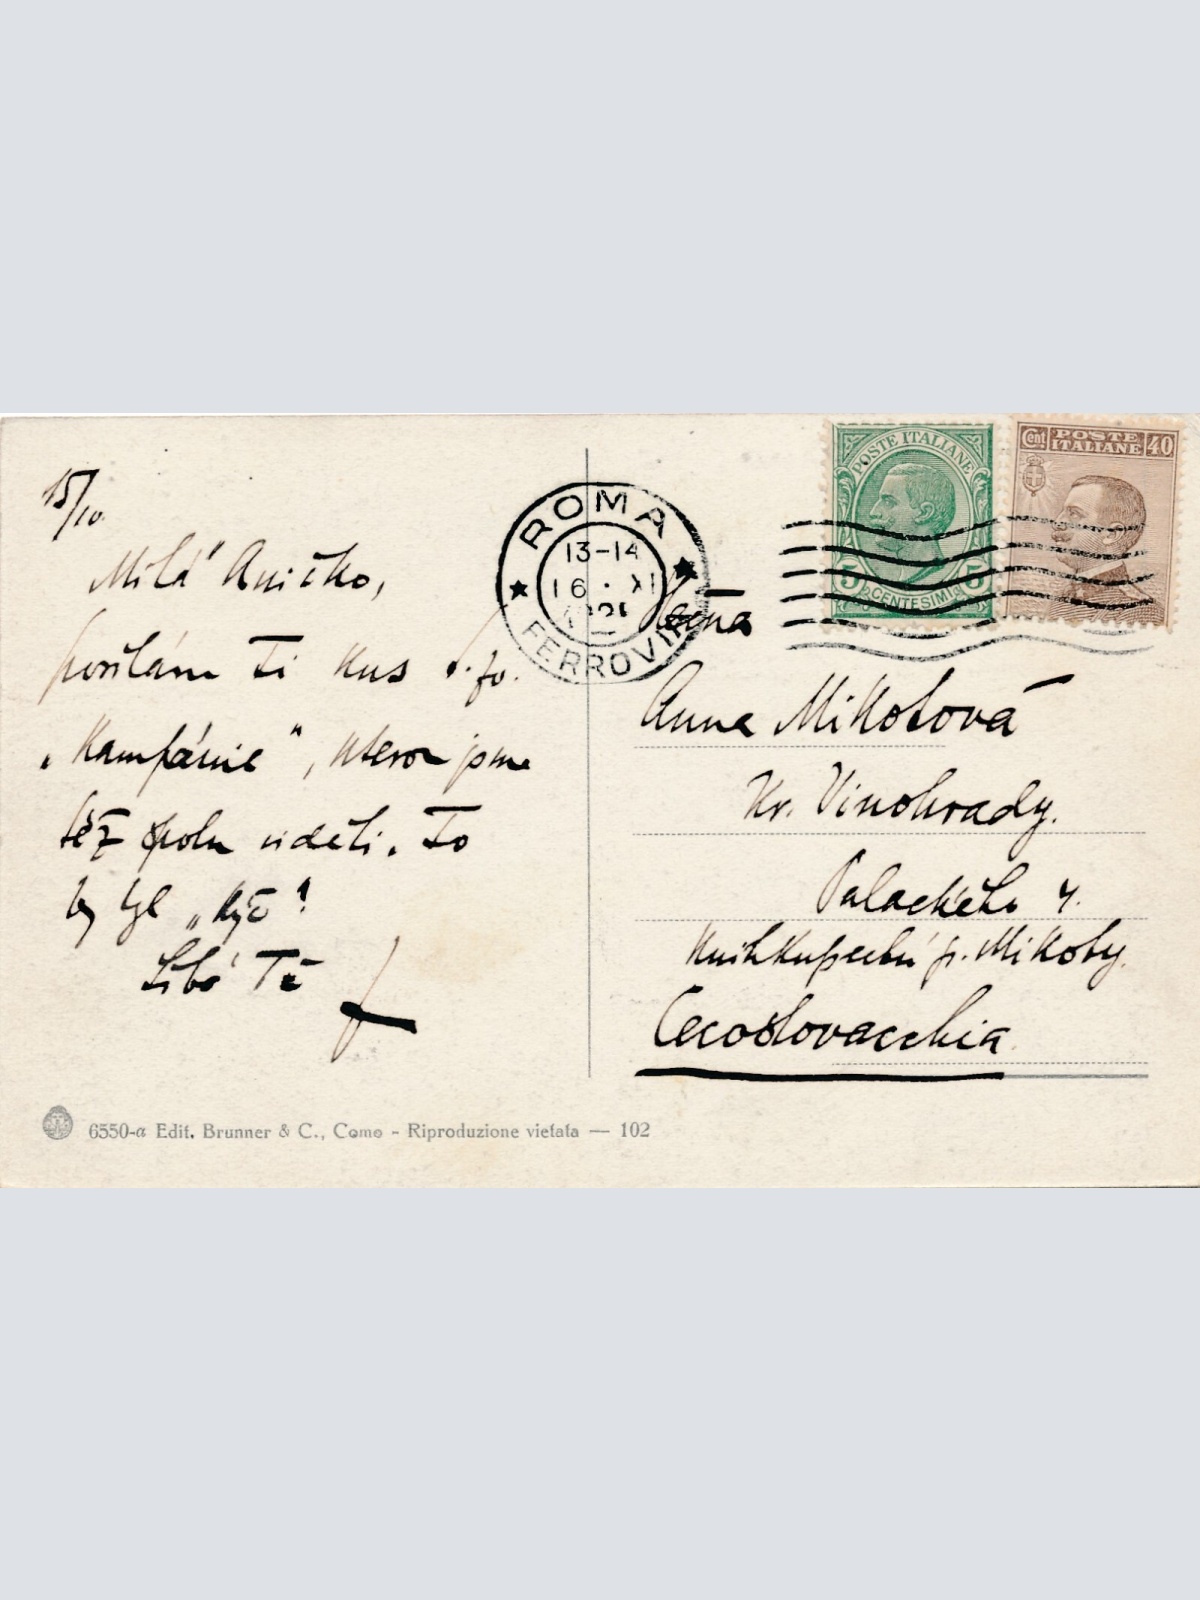 15/10.
Milá Aničko,
posílám Ti kus
„Kampánie“, kterou jsme
též spolu viděli. To
by byl „kýč“!
Líbá Tě
ROMA
13-14
16 · XI
FERROVIA
POSTE ITALIANE
5 CENTESIMI 5
Cent POSTE ITALIANE 40
Anna Mikotová
Kr. Vinohrady.
Palackého 4.
Knihkupectví p. Mikoty.
Cecoslovacchia
6550-a Edit. Brunner & C., Como - Riproduzione vietata — 102